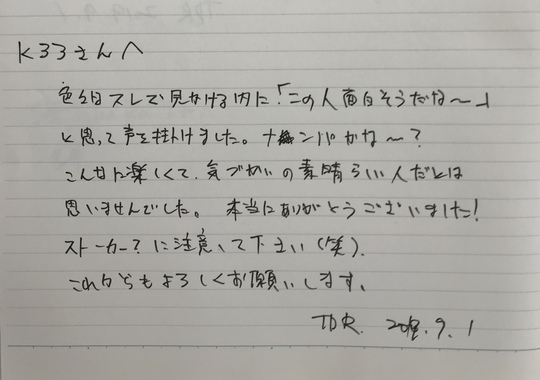 K33さんへ
色々なスレで見かける内に「この人面白そうだな〜」
と思って声を掛けました。ナンパかな〜?
こんなに楽しくて、気づかいの素晴らしい人だとは
思いませんでした。本当にありがとうございました!
ストーカー?に注意して下さい(笑).
これからもよろしくお願いします。
TDR. 2018.9.1